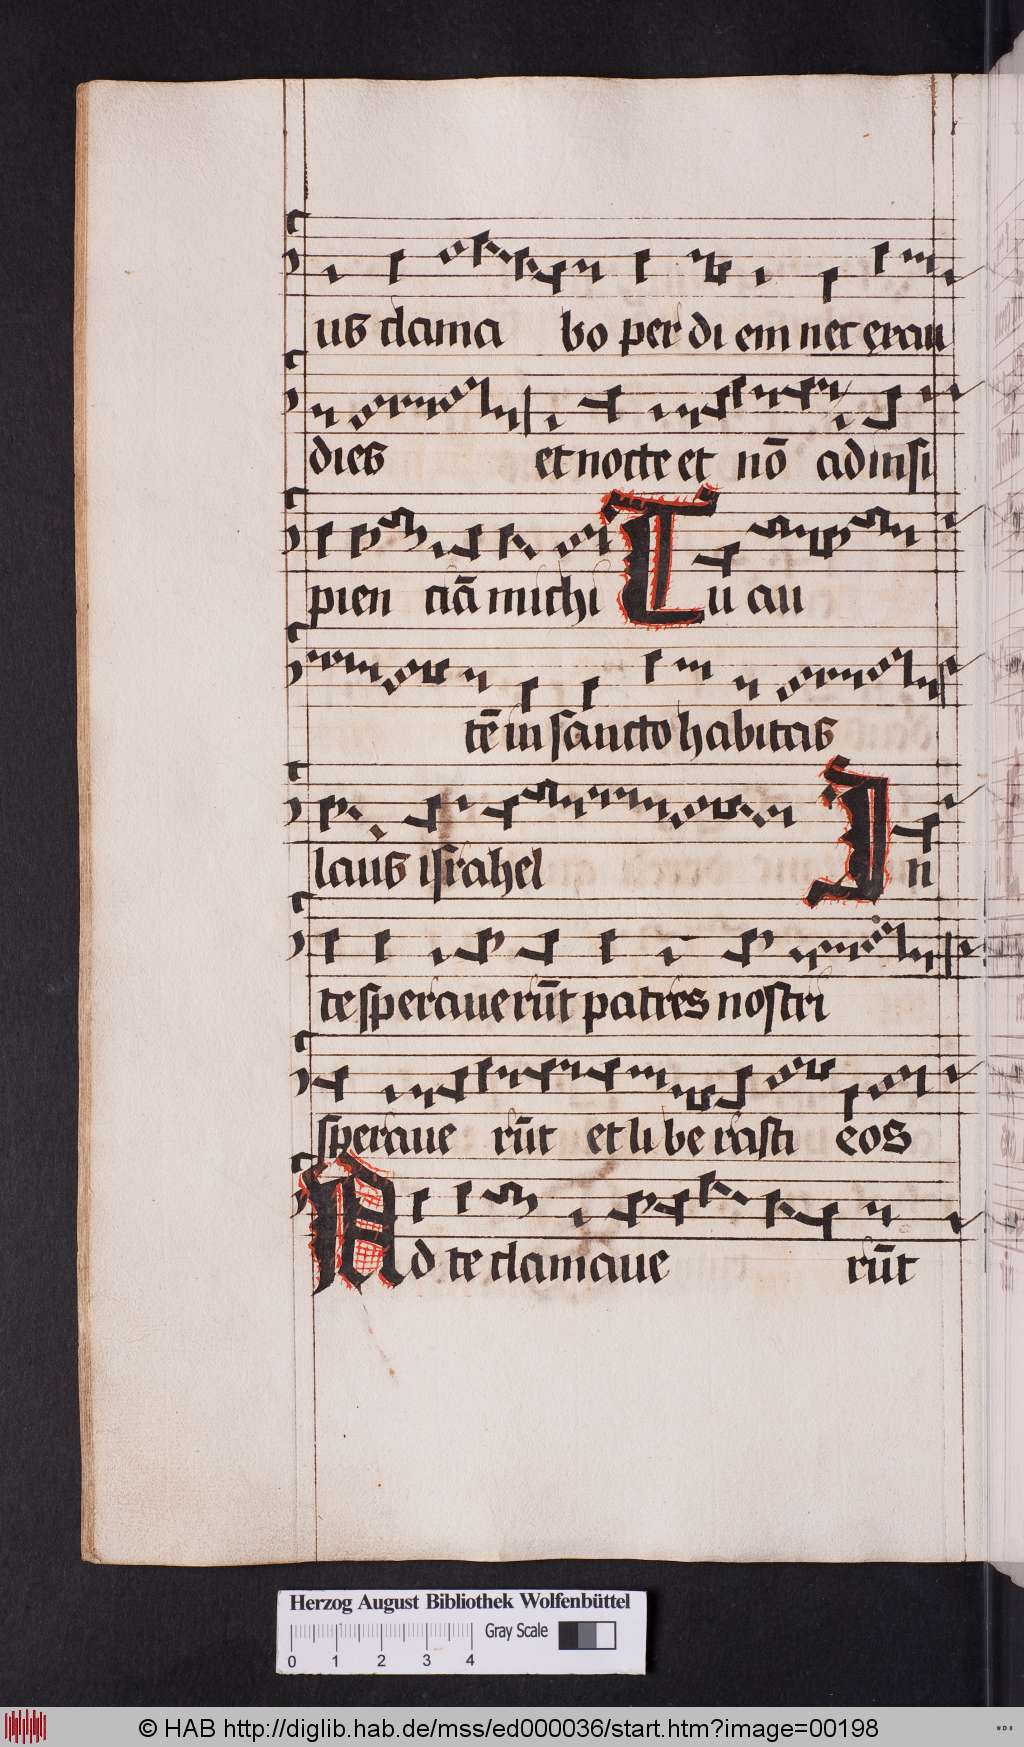 us clama bo per di em nec exau
dies et nocte et nō ad insi
pien ciā michi Tu au
tē in sancto habitas
laus israhel In
te speraue rūt patres nostri
speraue rūt et li be rasti eos
Ad te clamaue rūt
Herzog August Bibliothek Wolfenbüttel
Gray Scale
0 1 2 3 4
© HAB http://diglib.hab.de/mss/ed000036/start.htm?image=00198